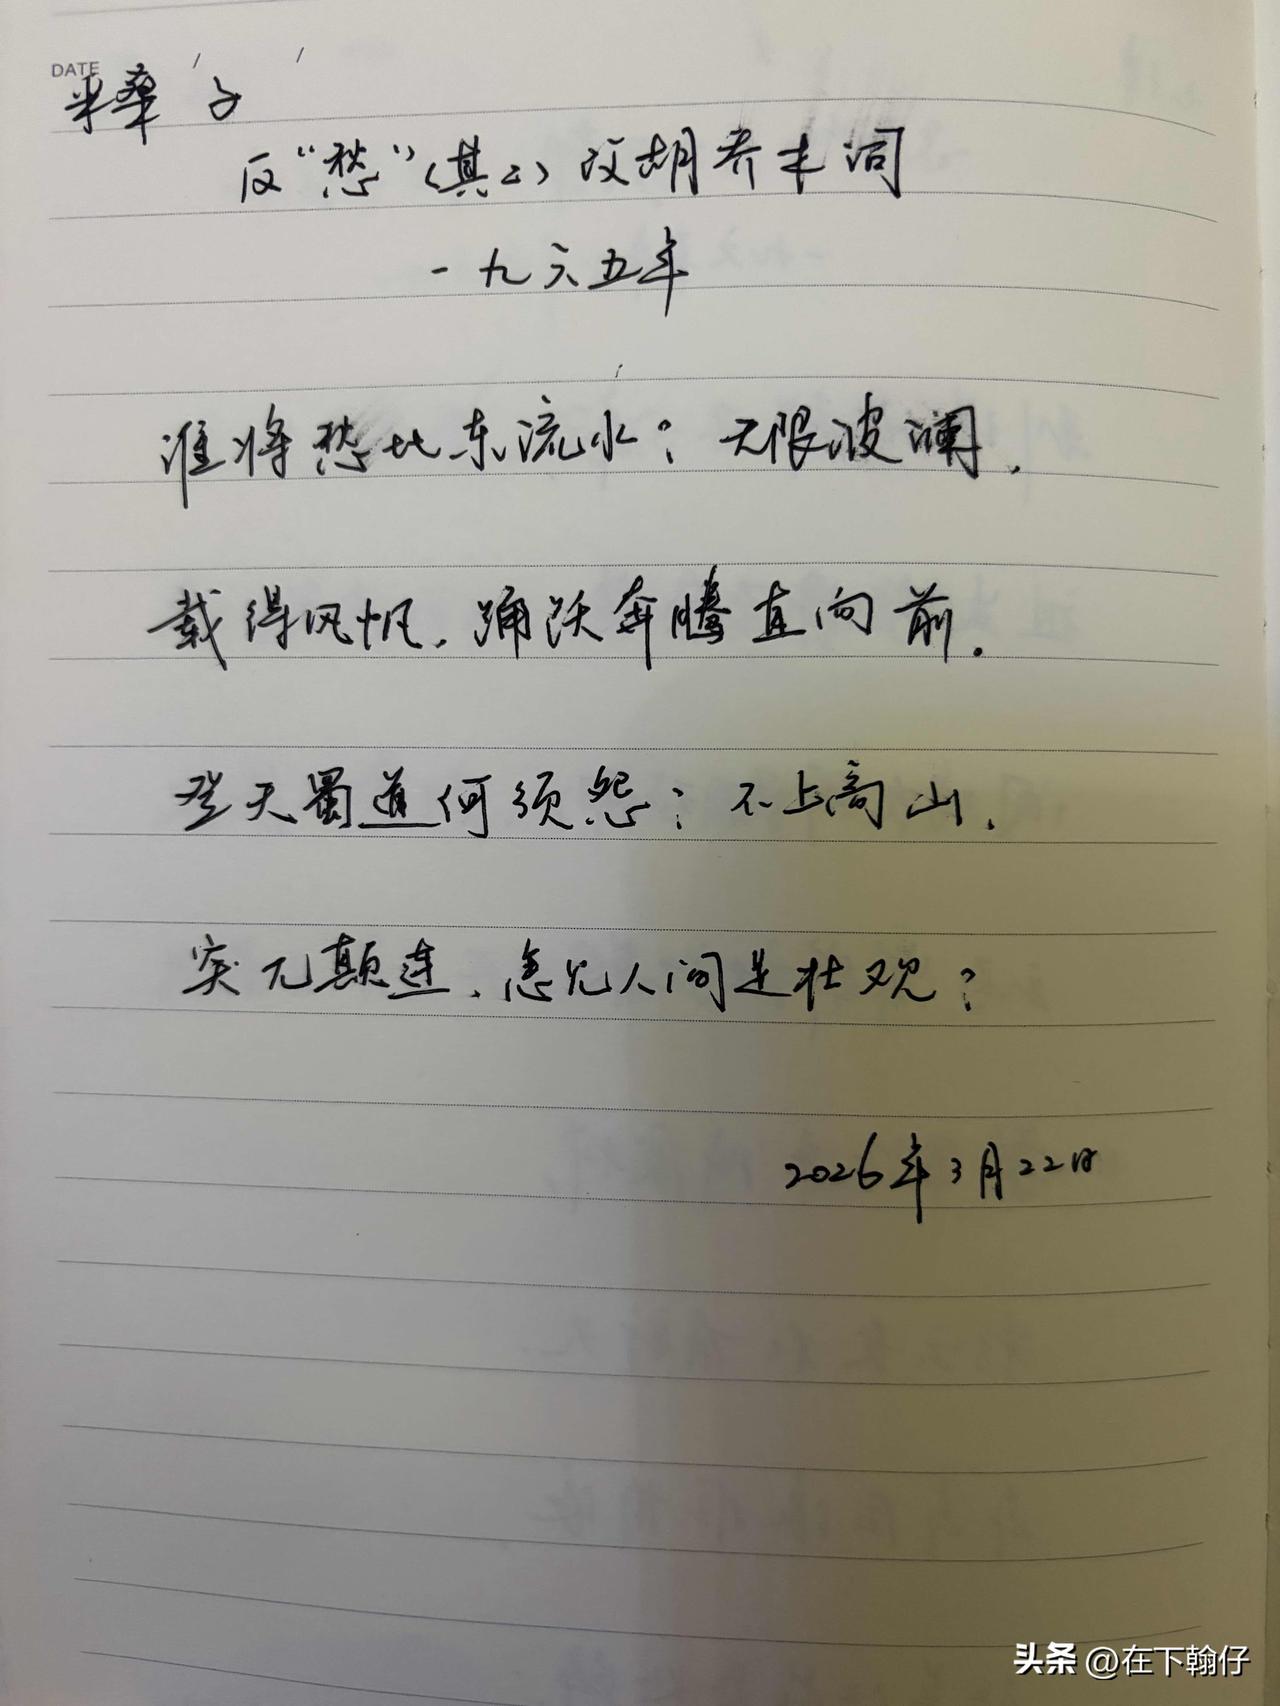 DATE / /
采桑子
反“愁”（其二）改胡乔木词
一九六五年
谁将愁比东流水？无限波澜，
载得风帆，踊跃奔腾直向前。
登天蜀道何须怨？不上高山，
突兀颠连，怎见人间足壮观？
2026年3月22日
头条 @在下翰仔